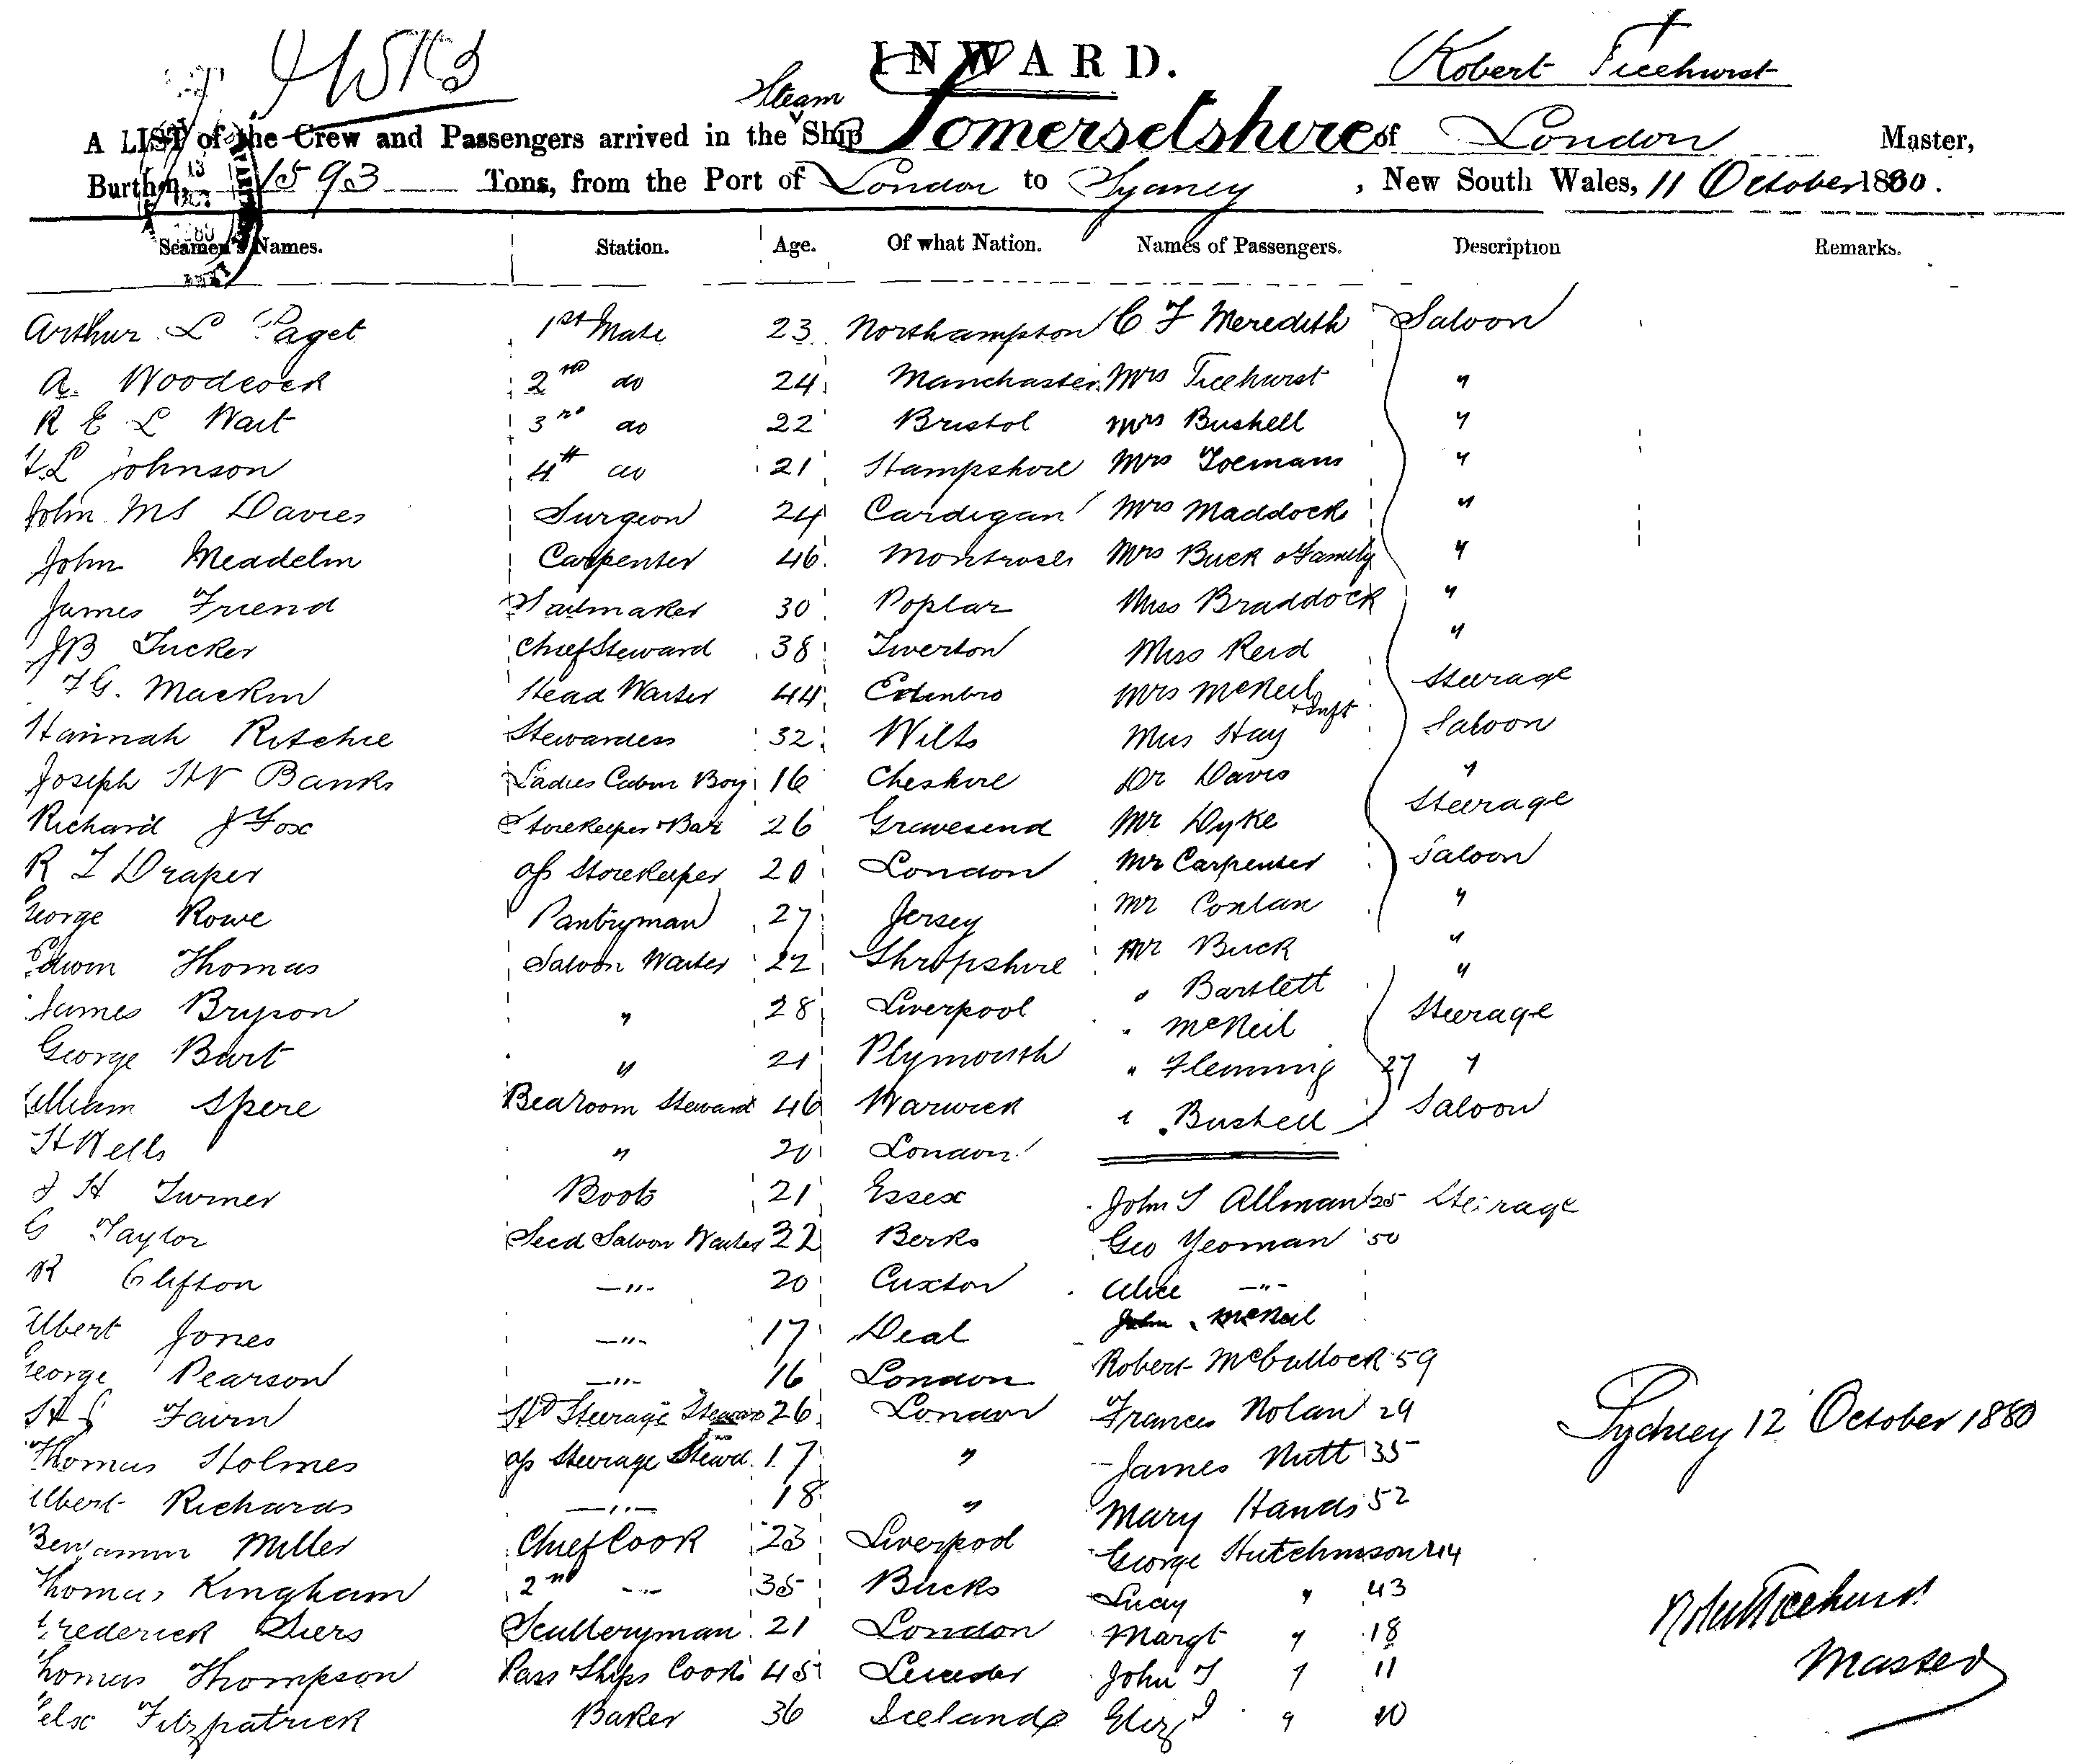 INWARD.
Robert Ticehurst
A LIST of the Crew and Passengers arrived in the Steam Ship Somersetshire of London Master,
Burthen, 1593 Tons, from the Port of London to Sydney, New South Wales, 11 October 1880.
Seamen's Names. Station. Age. Of what Nation. Names of Passengers. Description Remarks.
Arthur L Paget 1st Mate 23 Northampton C F Meredith Saloon
A. Woodcock 2nd do 24 Manchester Mrs Ticehurst "
R E L Wait 3rd do 22 Bristol Mrs Bushell "
L Johnson 4th do 21 Hampshire Mrs "
John Ms Davies Surgeon 24 Cardigan Mrs Maddock "
John Meadelm Carpenter 46 Montrose Mrs Buck & Family "
James Friend Sailmaker 30 Poplar Miss Braddock "
JB Tucker Chief Steward 38 Tiverton Miss Reid "
F G. Mackin Head Waiter 44 Edinbro Mrs McNeil & Inft Steerage
Hannah Ritchie Stewardess 32 Wilts Miss Hay Saloon
Joseph Banks Ladies Cabin Boy 16 Cheshire Dr Davis "
Richard J Fox Storekeeper & Bar 26 Gravesend Mr Dyke Steerage
R T Draper ass Storekeeper 20 London Mr Carpenter Saloon
George Rowe Pantryman 27 Jersey Mr Conlan "
Edwin Thomas Saloon Waiter 22 Shropshire Mr Buck "
James Bryson " 28 Liverpool " Bartlett "
George Burt " 21 Plymouth " McNeil Steerage
" Flemming 27 "
William Spere Bedroom Steward 46 Warwick " Bushell Saloon
H Wells " 20 London
J H Turner Boots 21 Essex John S Allman 25 Steerage
G Taylor Secd Saloon Waiter 22 Berks Geo Yeoman 50
R Clifton -"- 20 Cuxton Alice -"-
Albert Jones -"- 17 Deal John McNeil
George Pearson -"- 16 London Robert McCullock 59
H S Fairn Hd Steerage Steward 26 London Frances Nolan 29
Sydney 12 October 1880
Thomas Holmes ass Steerage Stewd. 17 " James Nutt 35
Albert Richards -"- 18 " Mary Hands 52
Benjamin Miller Chief Cook 23 Liverpool George Hutchinson 44
Thomas Kingham 2nd -"- 35 Bucks Lucy " 43
Robert Ticehurst
Frederick Sculleryman 21 London Margt " 18
Master
Thomas Thompson Pass Ships Cook 45 Leicester John T " 11
Felix Fitzpatrick Baker 36 Iceland Eliz " 10